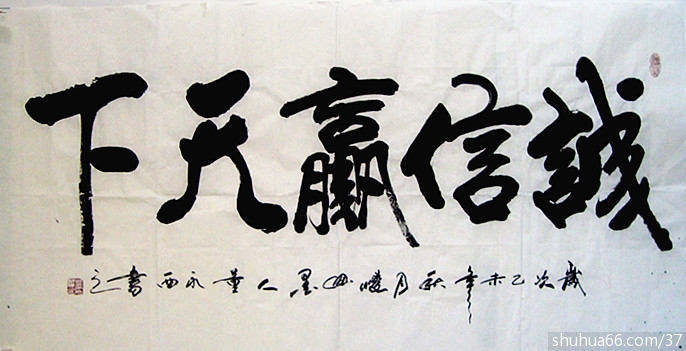 誠信贏天下
歲次乙未年秋月 墨人董永西書之
shuhua66.com/37